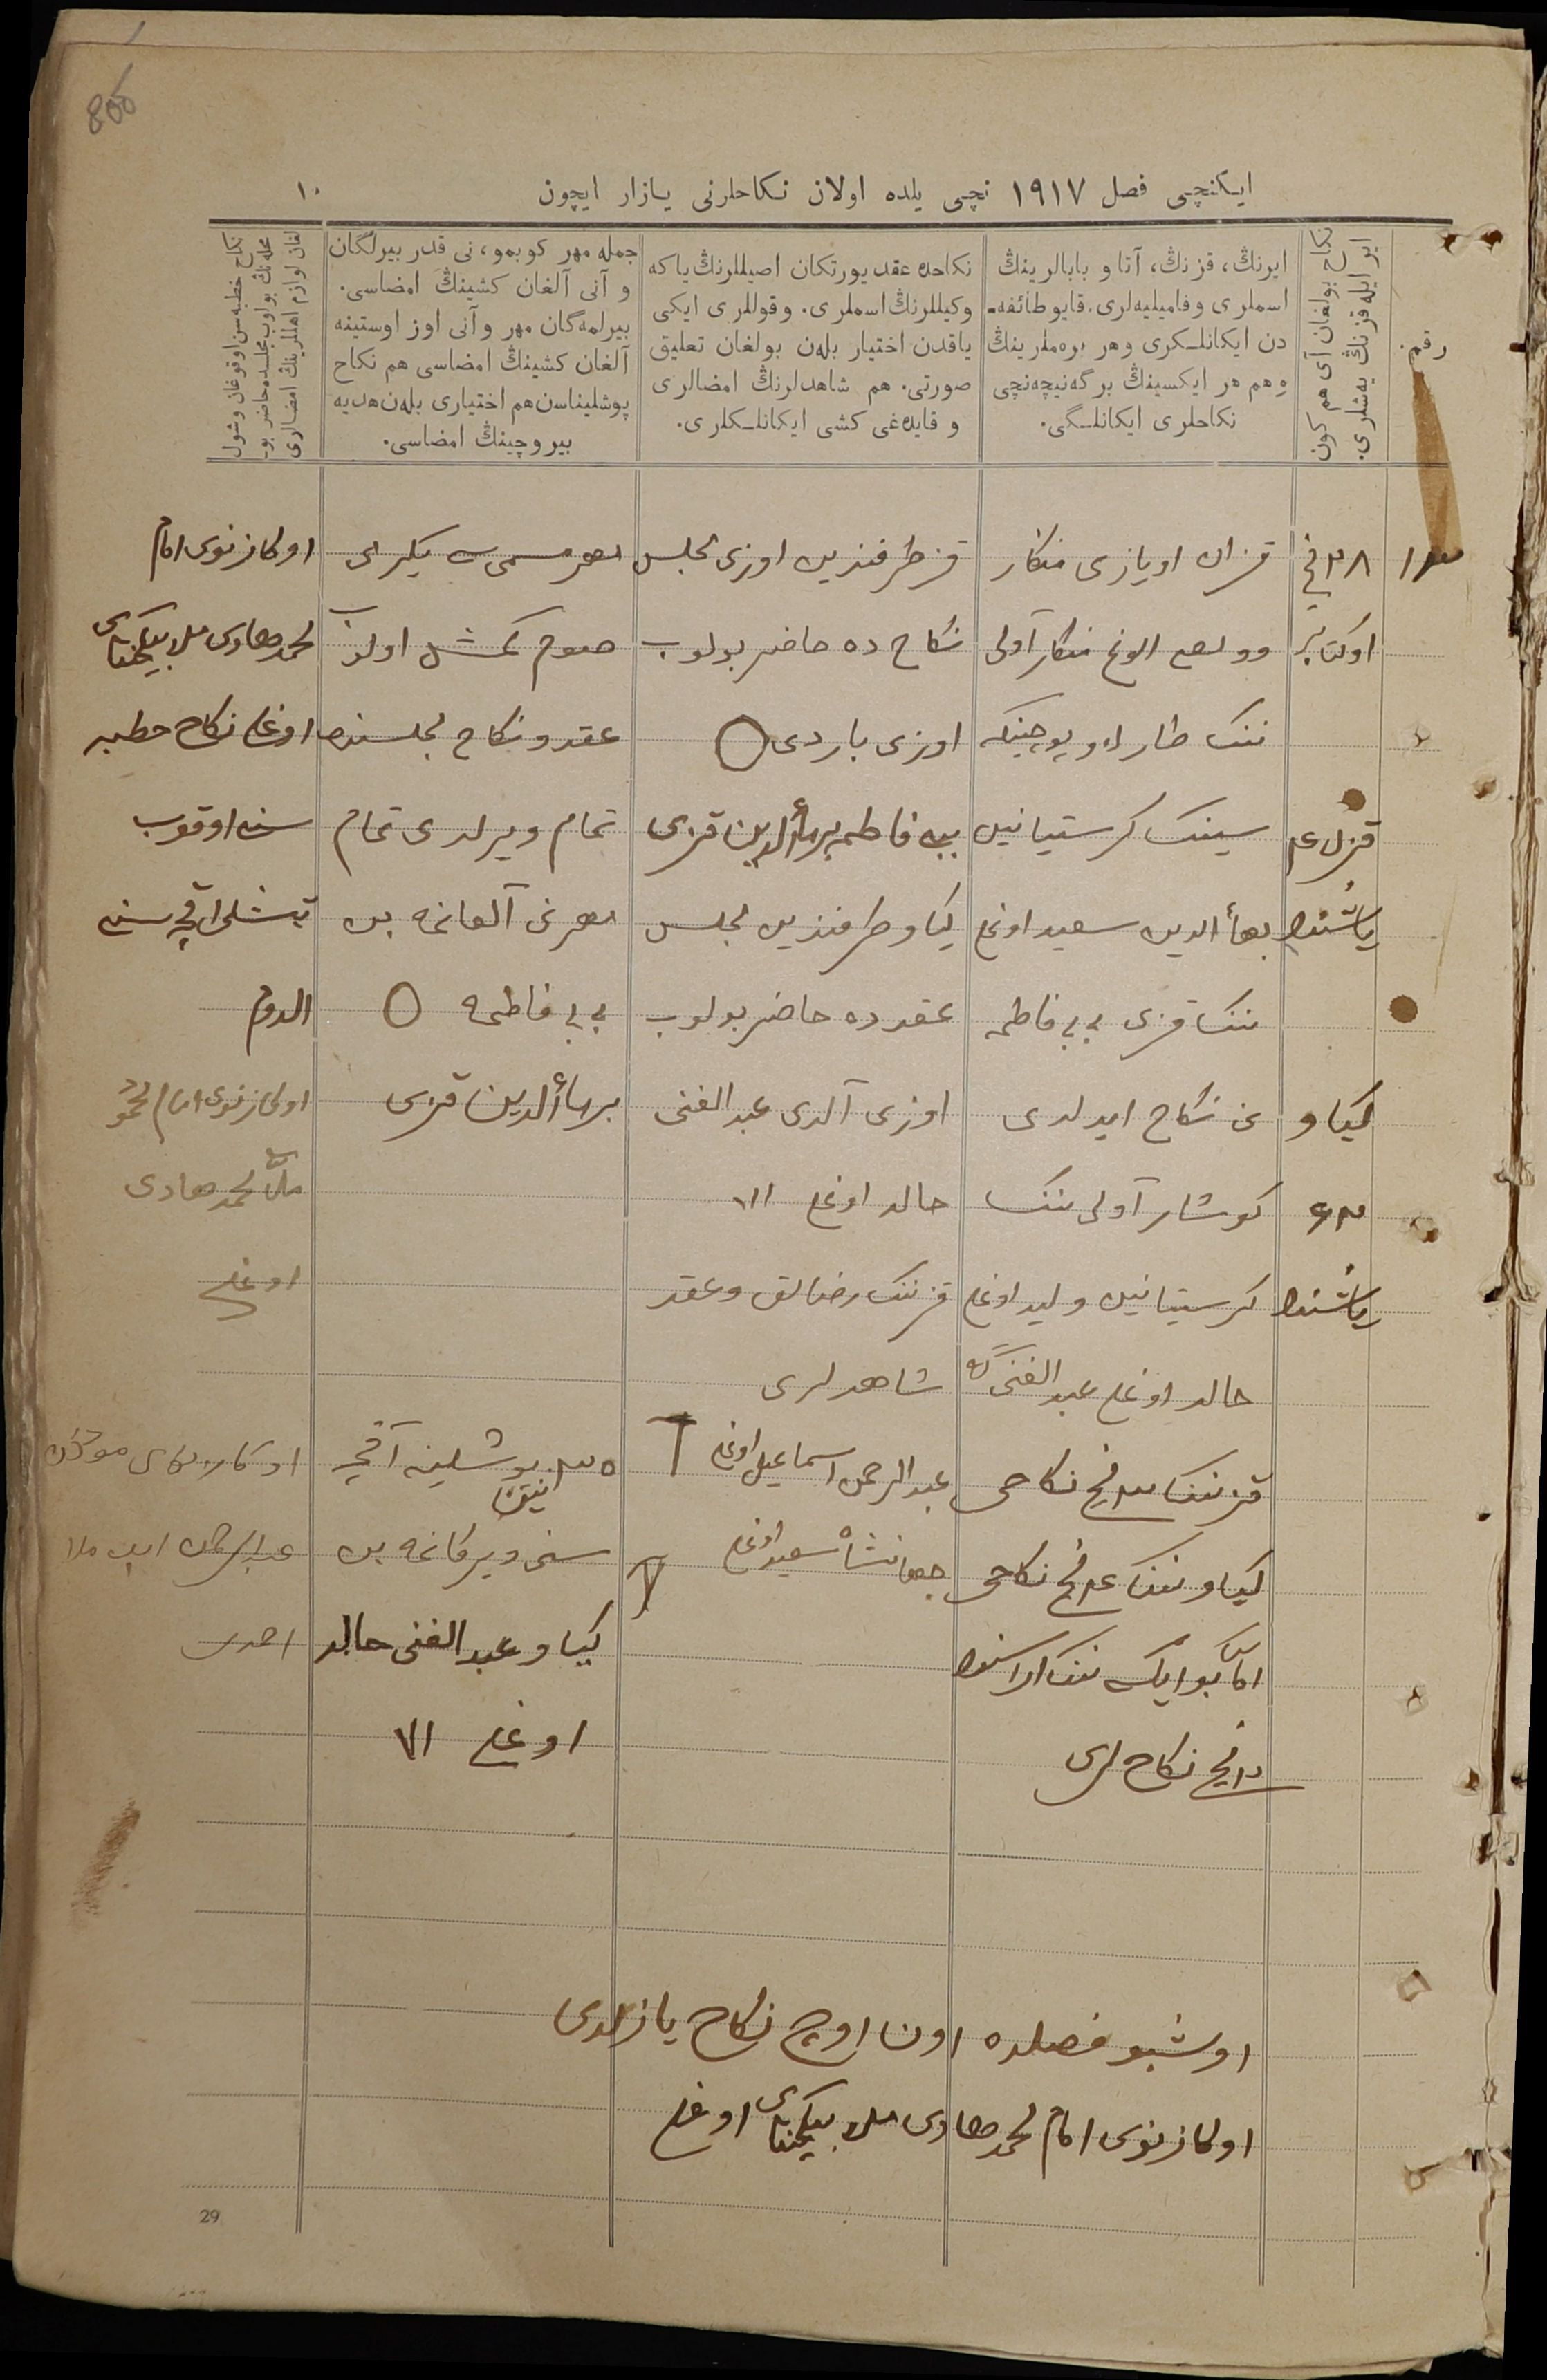 806
ایکنچی فصل ١٩١٧ نچی یلده اولان نکاحلرنی یازار ایچون
١٠
رقم.
نکاح بولغان آی هم کون
ایر ایله قزنڭ یەشلری.
ایرنڭ، قزنڭ، آتا و بابالرینڭ
اسملری وفامیلیەلری. قایو طائفه‌ـ
دن ایکانلـکری وهر برەملرینڭ
وهم هر ایکسینڭ برگه‌نیچه‌نچی
نکاحلری ایکانلـگی.
نکاحده عقد یورتکان اصیللرنڭ یاکه
وکیللرنڭ اسملری. وقوللری ایکی
یاقدن اختیار بله‌ن بولغان تعلیق
صورتی. هم شاهدلرنڭ امضالری
و قایده‌غی کشی ایکانلـکلری.
جمله مهر کوبمو، نی قدر بیرلگان
و آنی آلغان کشینڭ امضاسی.
بیرلمه‌گان مهر وآنی اوز اوستینه
آلغان کشینڭ امضاسی هم نکاح
پوشلیناسن هم اختیاری بله‌ن هدیه
بیروچینڭ امضاسی.
نکاح خطبه‌سن اوقوغان وشول
محله‌نڭ بولوب مجلسده حاضر بو‌ـ
لغان لوازم اهللرینڭ امضالری
١٣
٢٨ نچی
اوکتابر
قزل ٢٤
یاشنده
کیاو
٤٣
یاشنده
قزان اویازی منکار
وولصی الوغ منکار آولی
ننک طار اویوچینکه
سینک کرستیانین
بهأالدین سعید اوغلی
ننک قزی بی بی فاطمه
نی نکاح ایدلدی
کوشار آولی ننک
کرستیانین ولید اوغلی
خالد اوغلی عبدالغنی گه
قزننک نچی نکاحی
کیاوننک نچی نکاحی
اما بو ایکی ننک اراسنده
نچی نکاح لری
قز طرفندین اوزی مجلس
نکاح ده حاضر بولوب
اوزی باردی
بیبی فاطمه بهأالدین قزی
کیاو طرفندین مجلس
عقدده حاضر بولوب
اوزی آلدی عبدالغنی
خالد اوغلی
قزننک رضالق وعقد
شاهدلری
عبدالرحمن اسماعیل اوغلی
جهانشاه سعید اوغلی
مهر مسمی یکرمی
صوم کمش اولوب
عقدو نکاح مجلسنده
تمام ویرلدی تمام
مهرنی آلغانمه بن
بی بی فاطمه
بهأالدین قزی
پوشلینه آقچه
سنی ویرکانمه بن
کیاو عبدالغنی خالد
اوغلی
اوکازنوی امام
محمدهادی ملا بیکچنتای
اوغلی نکاح خطبه
سنه اوقوب
پوشلی اقچه سنی
الدوم
اوکازنوی امام محمود
ملا محمدهادی
اوغلی
اوکازنای مؤذن
عبدالرحمن ابن ملا
احمد
اوشبو فصلده اون اوچ نکاح یازلدی
اوکازنوی امام محمدهادی ملا بیکچنتای اوغلی
29